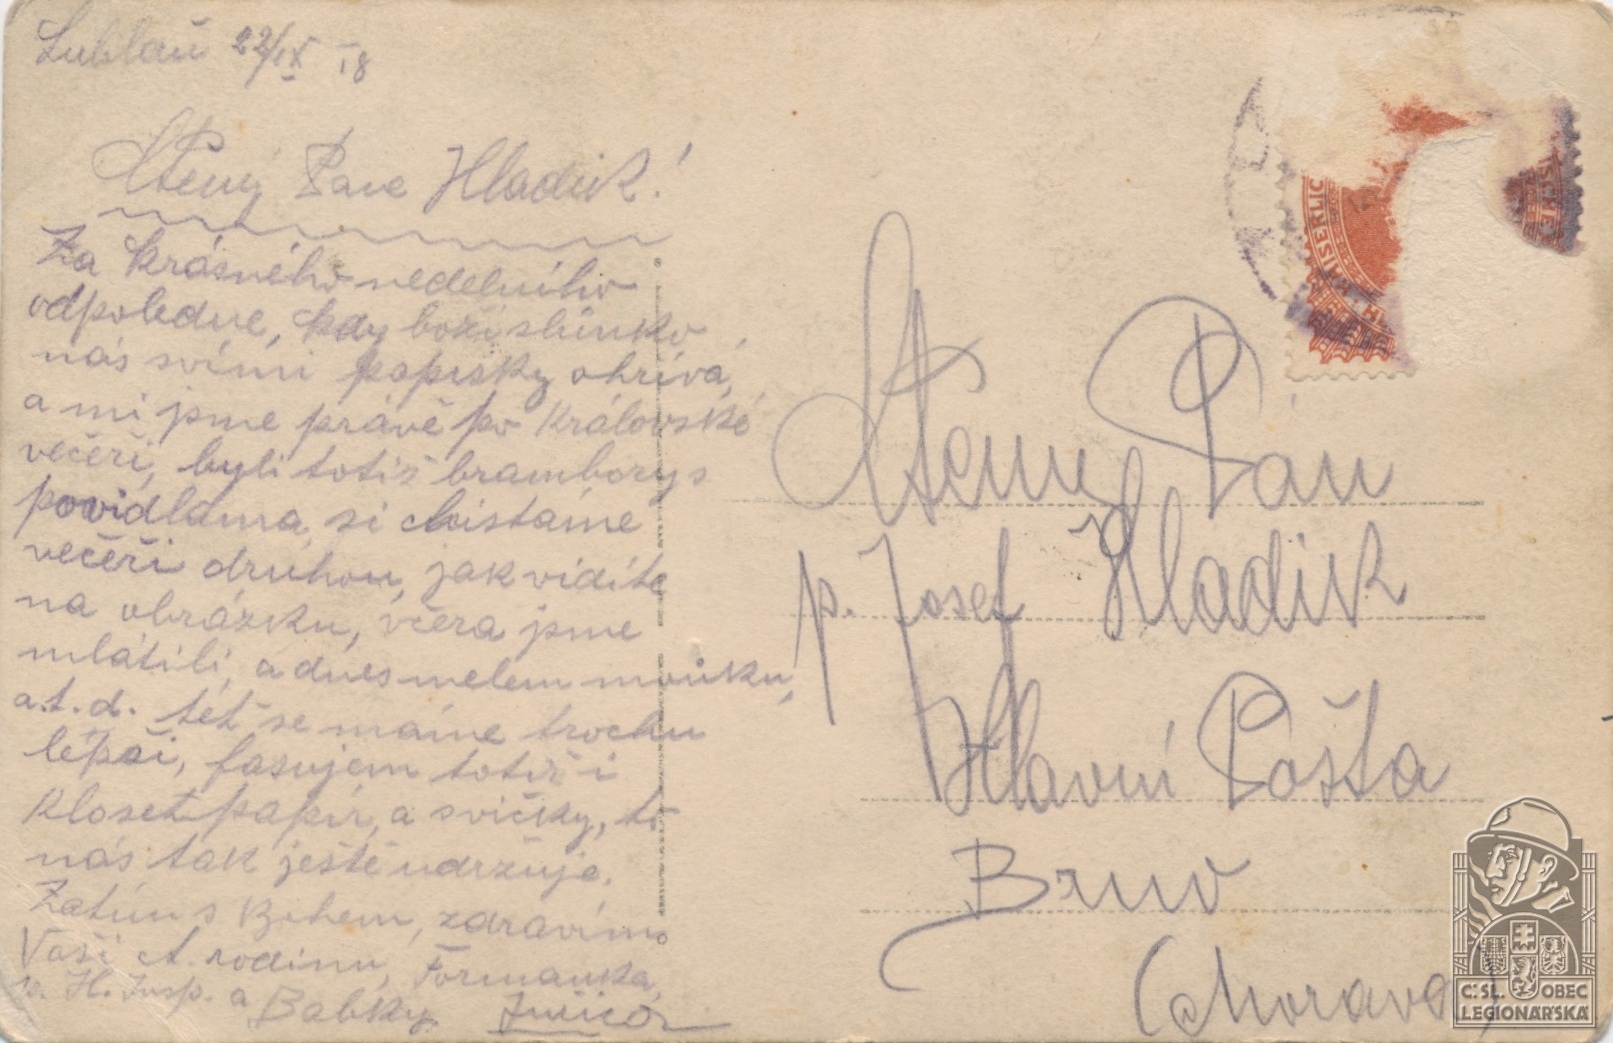 Lublaň 22/IX 18
Ctěný Pane Hladik!
Za krásného nedelního
odpoledne, kdy boží slúnko
nás svími papisky ohrívá,
a mi jsme právě po královské
večéři, byli totiž brambory s
povidlama, si chistáme
večéři druhou, jak vidíte
na obrázku, včera jsme
mlátili, a dnes melem mouku,
a.t.d. teť se máme trochu
lépší, fasujem totiž i
kloset papír, a svíčky, to
nás tak ještě udržuje.
Zatím s Bohem, zdravím
Vaši ct. rodinu, Formanka,
p. H. Insp. a Babky.
Ctěný Pán
p. Josef Hladik
Hlavní Pošta
Brno
(Morava)
C:SL. OBEC
LEGIONÁŘSKÁ